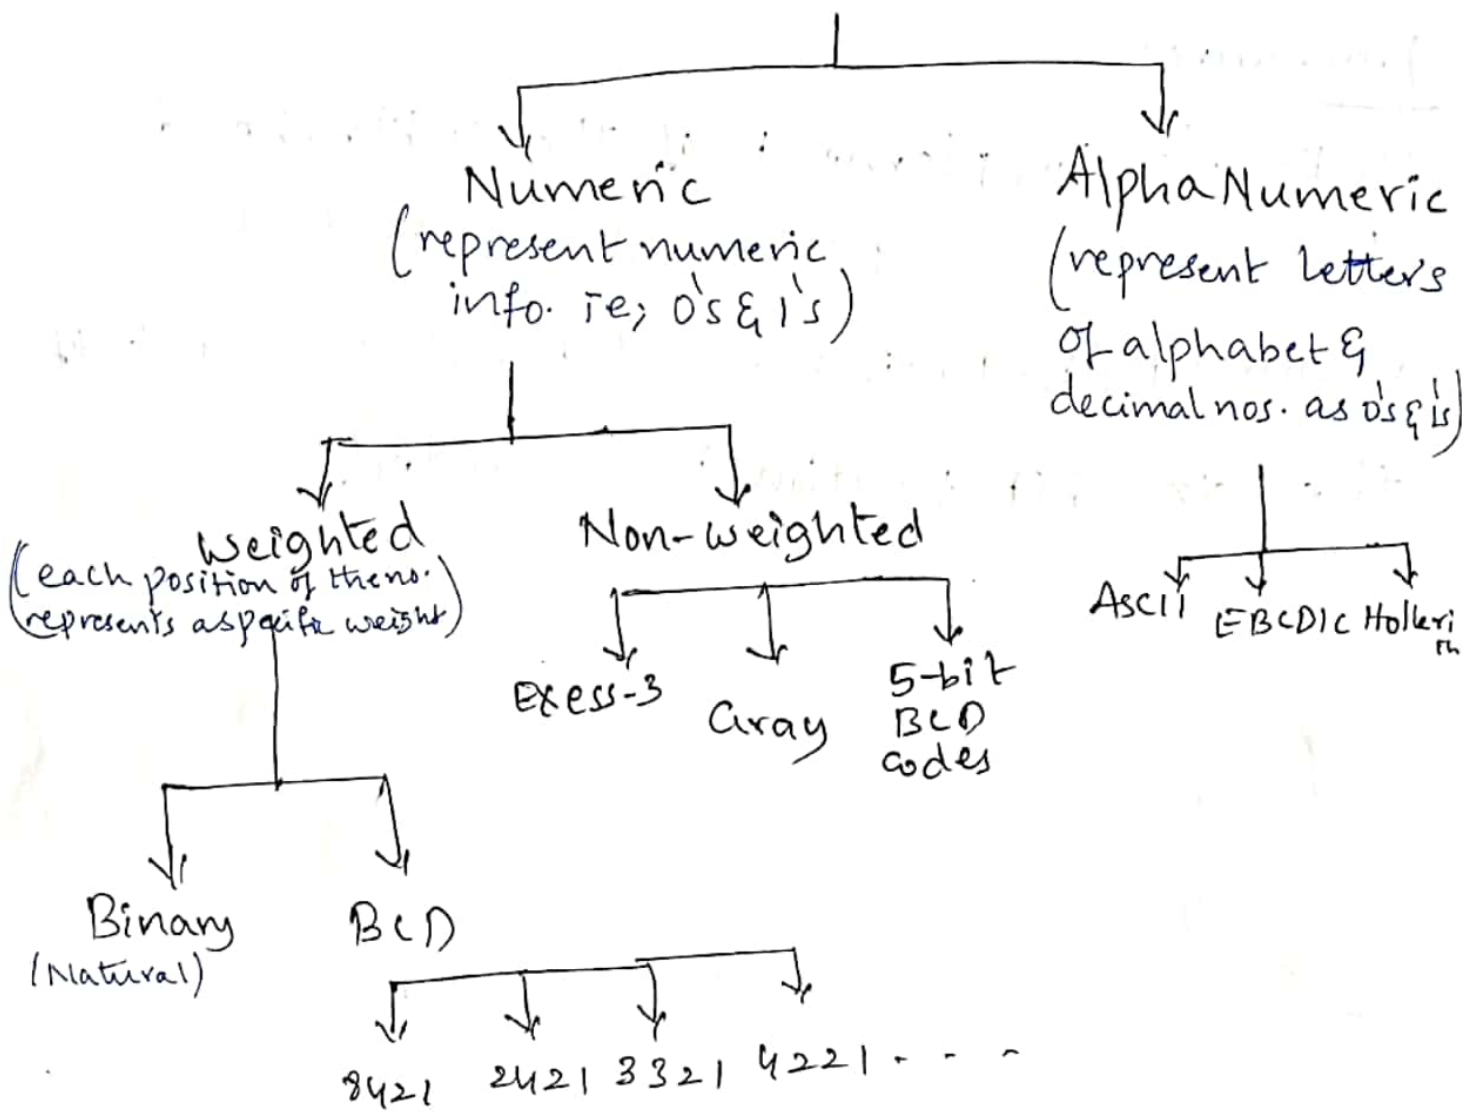 Numeric
(represent numeric
info. ie; 0's & 1's)
AlphaNumeric
(represent letters
of alphabet &
decimal nos. as 0's & 1's)
Weighted
(each position of the no.
represents a specific weight)
Non-weighted
Ascii
EBCDIC
Holleri
th
Exess-3
Gray
5-bit
BCD
codes
Binary
(Natural)
BCD
8421
2421
3321
4221 - - -